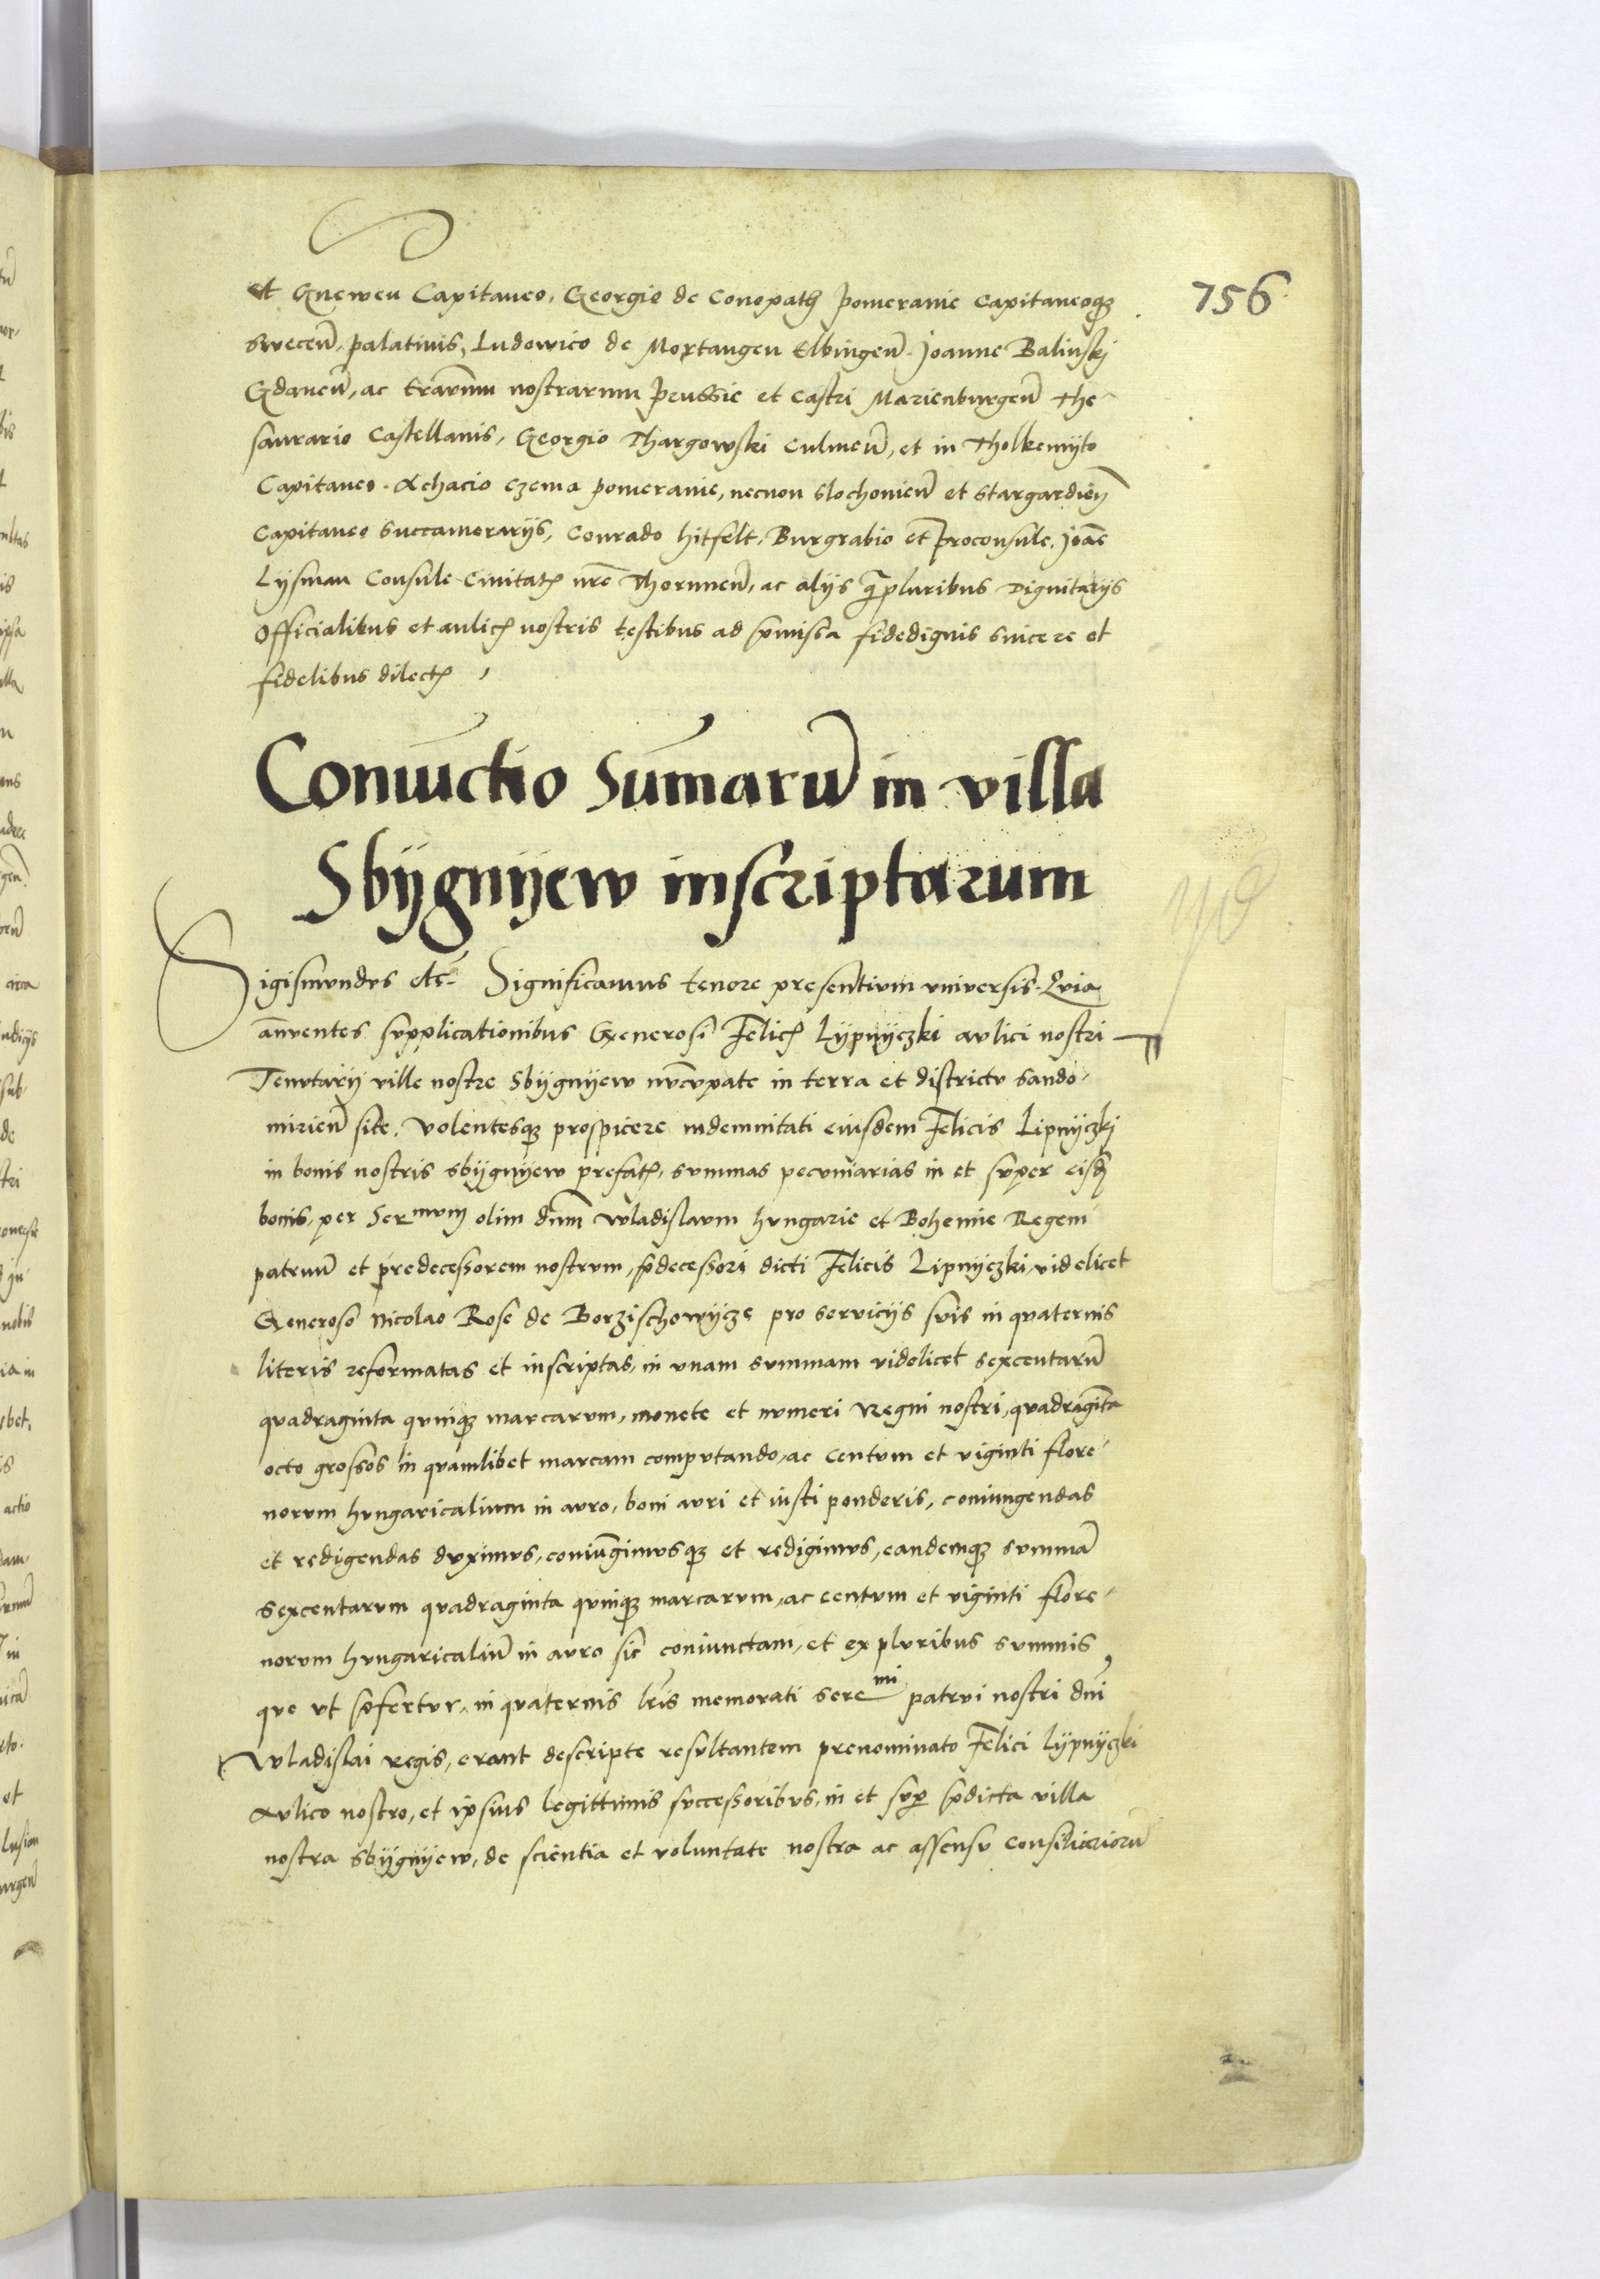 756
et Gneweń Capitaneo, Georgio de Conopath pomeranie Capitaneoqȝ
Sweceñ, palatinis, Ludowico de Mortangen Elbingeñ, Joanne Balinski
Gdaneñ, ac terarum nostrarum prussie et Castri Marienburgeñ The-
saurario Castellanis, Georgio Thargowski Culmeñ, et in Tholkemyto
Capitaneo. Achacio Czema pomeranie, necnon Slochonieñ et Stargardieñ
Capitaneo Succamerarijs, Conrado hitfelt, Burgrabio et proconsule, Joañe
Lysman Consule Ciuitatꝭ nr̃e Thoruneñ, ac alijs q̃pluribus Dignitarijs
Officialibus et aulicꝭ nostris testibus ad p̃missa fidedignis sincere et
fidelibus dilectꝭ,
Coniūctio Sum̃arū in villa
Sbijgnijew inscriptarum
Sigismundus etc̃. Significamus tenore presentium vniuersis. Quia
añuentes supplicationibus Generosi Felicꝭ Lypnyczki aulici nostri
Tenutarij ville nostre Sbijgnijew nũcupate in terra et districtu Sando-
mirieñ site. Volentesqȝ prospicere indemnitati eiusdem Felicis Lipnyczki
in bonis nostris Sbijgnijew prefatꝭ, summas pecuniarias in et super eisdꝭ
bonis, per Ser mum olim dnm̃ Wladislaum hungarie et Bohemie Regem
patruũ et predecessorem nostrum, p̃decessori dicti Felicis Lipnyczki, videlicet
Generoso Nicolao Rose de Borzischowycze pro seruicijs suis in quaternis
literis reformatas et inscriptas, in vnam summam videlicet sexcentarũ
quadraginta quinqȝ marcarum, monete et numeri Regni nostri, quadragĩta
octo grossos in quamlibet marcam computando, ac centum et viginti flore-
norum hungaricalium in auro, boni auri et iusti ponderis, coniungendas
et redigendas duximus, coniũgimusqȝ et redigimus, eandemqȝ summã
sexcentarum quadraginta quinqȝ marcarum, ac centum et viginti flore-
norum hungaricaliũ in auro sic coniunctam, et ex pluribus summis,
que vt p̃fertur, in quaternis lr̃is memorati Sere mi patrui nostri dnĩ
Wladislai regis, erant descripte resultantem prenominato Felici Lypnyczki
Aulico nostro, et ipsius legittimis successoribus, in et sup̃ p̃dicta villa
nostra Sbijgnijew, de scientia et voluntate nostra ac assensu Consiliariorũ